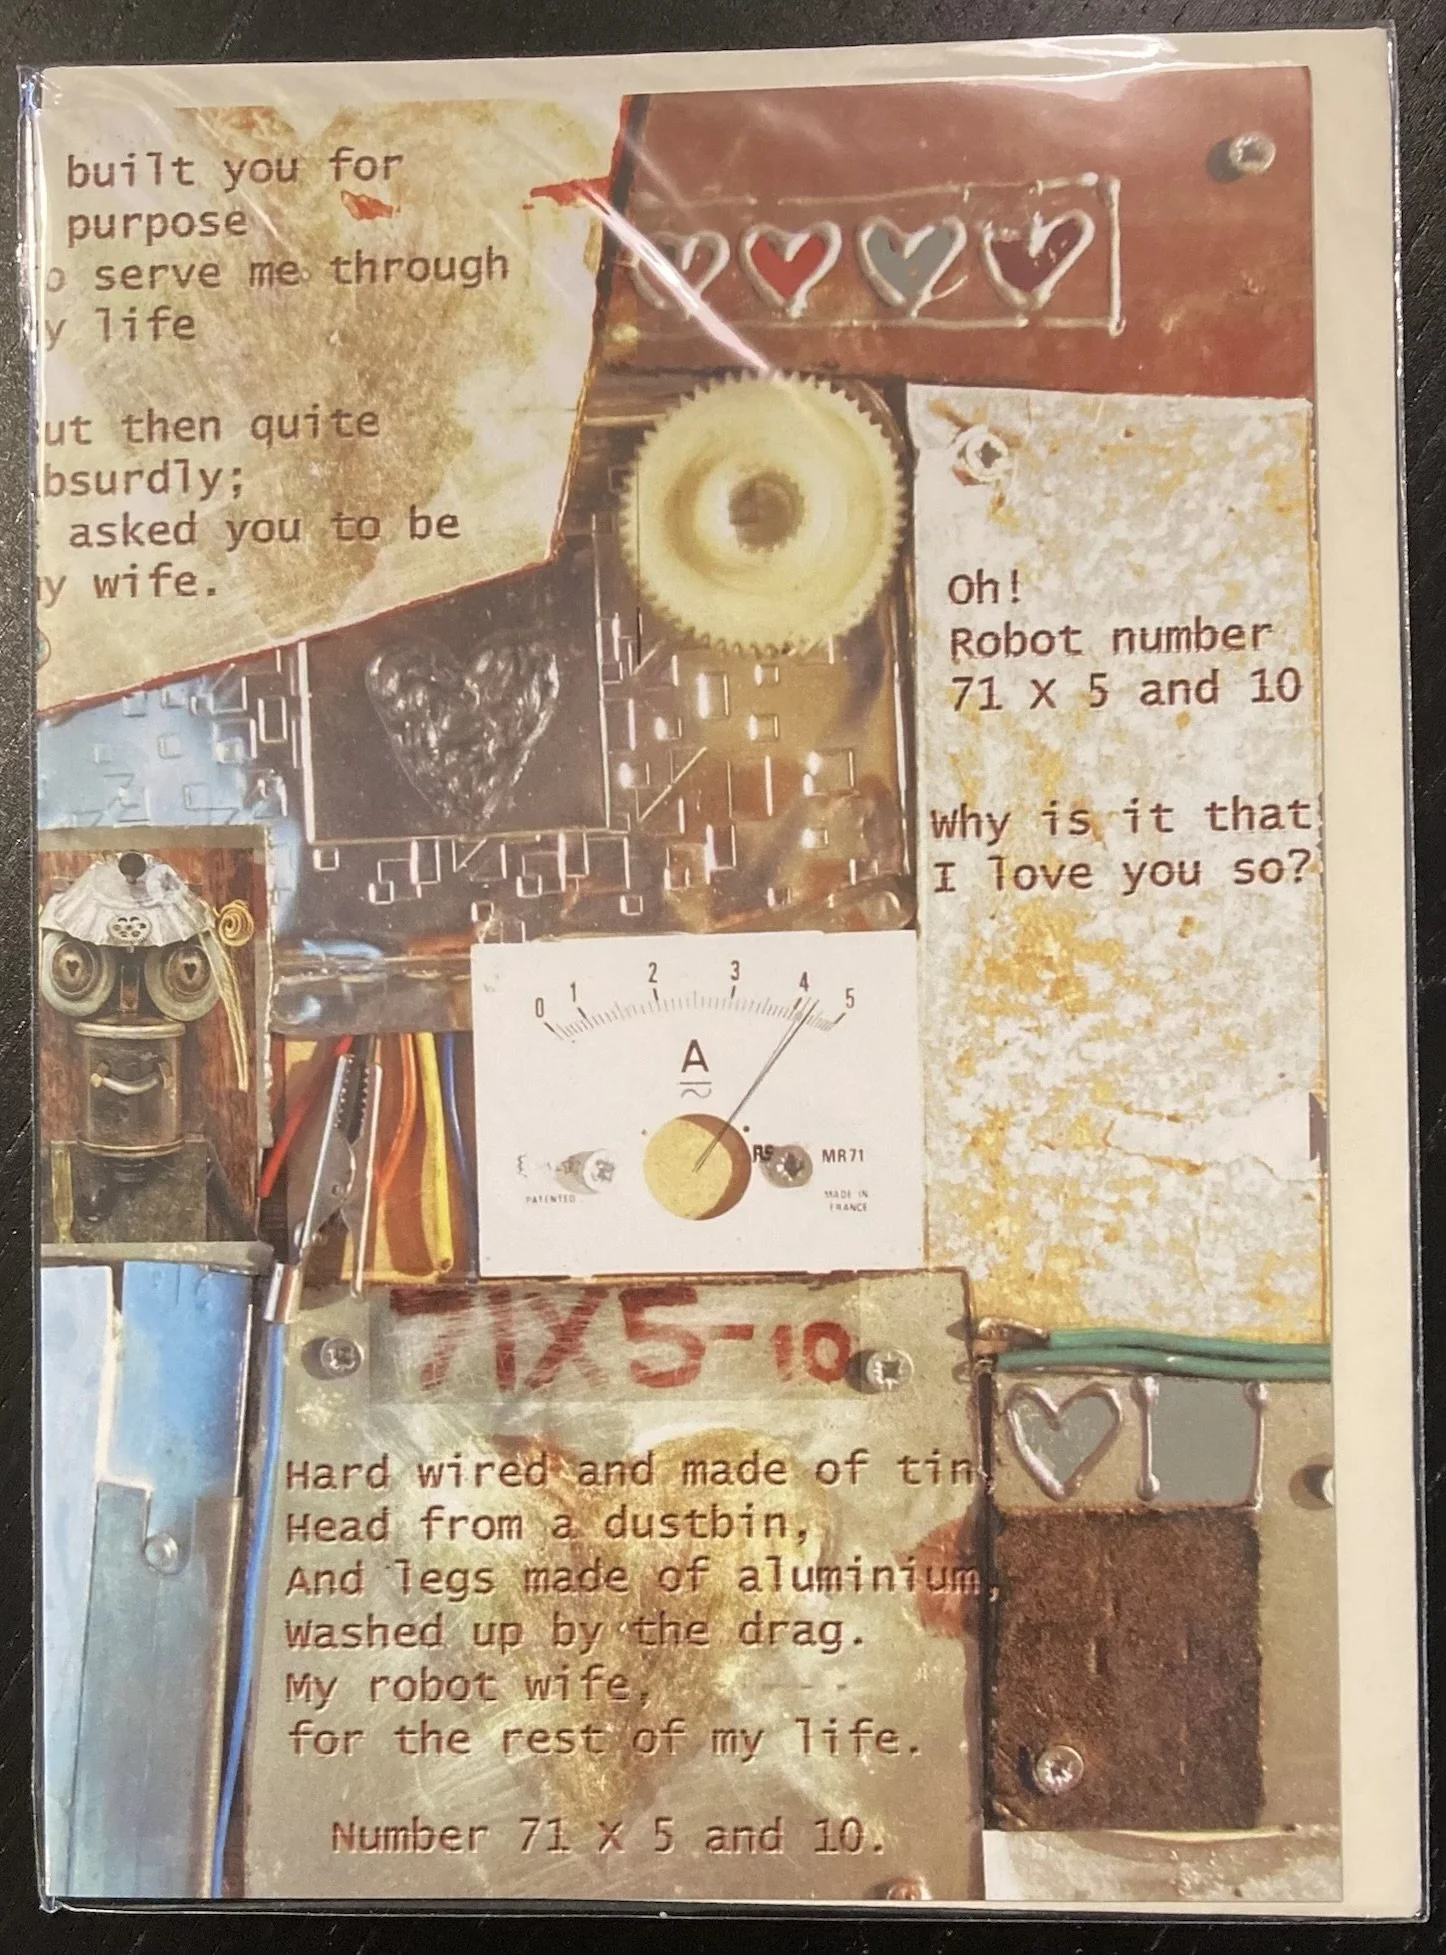 built you for
purpose
serve me through
life
then quite
asked you to be
wife.
Oh!
Robot number
71 x 5 and 10
Why is it that
I love you so?
0 1 2 3 4 5
A
RS MR71
PATENTED
MADE IN
FRANCE
71X5-10
Hard wired and made of tin,
Head from a dustbin,
And legs made of aluminium,
Washed up by the drag.
My robot wife,
for the rest of my life.
Number 71 x 5 and 10.